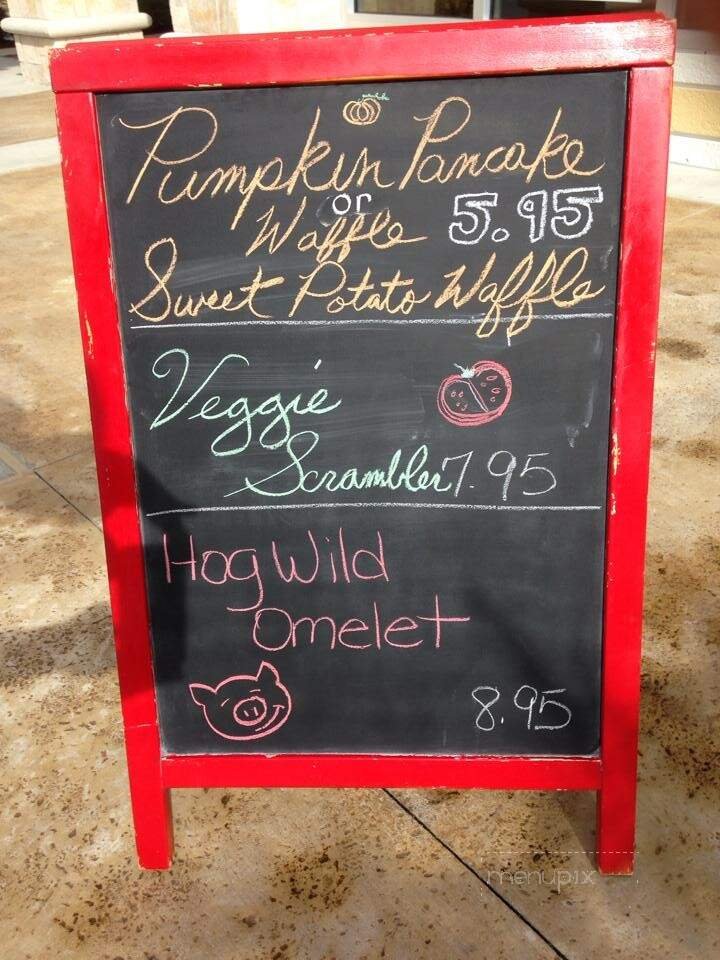 Pumpkin Pancake
or
Waffle 5.95
Sweet Potato Waffle
Veggie
Scrambler 7.95
Hog Wild
Omelet
8.95
menupix